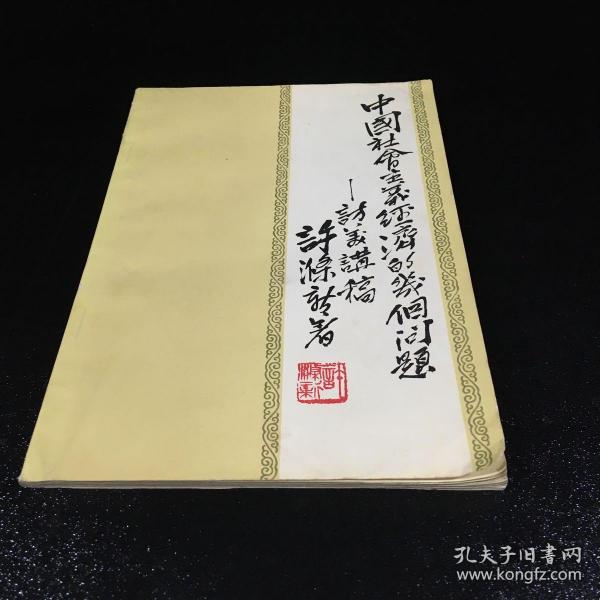 中國社會主义经濟的幾個问題
—訪美講稿
許滌新著
孔夫子旧書网
www.kongfz.com